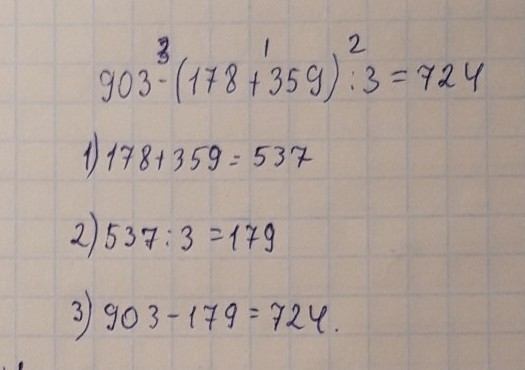 3 1 2
903-(178+359):3=724
1)178+359=537
2)537:3=179
3)903-179=724.